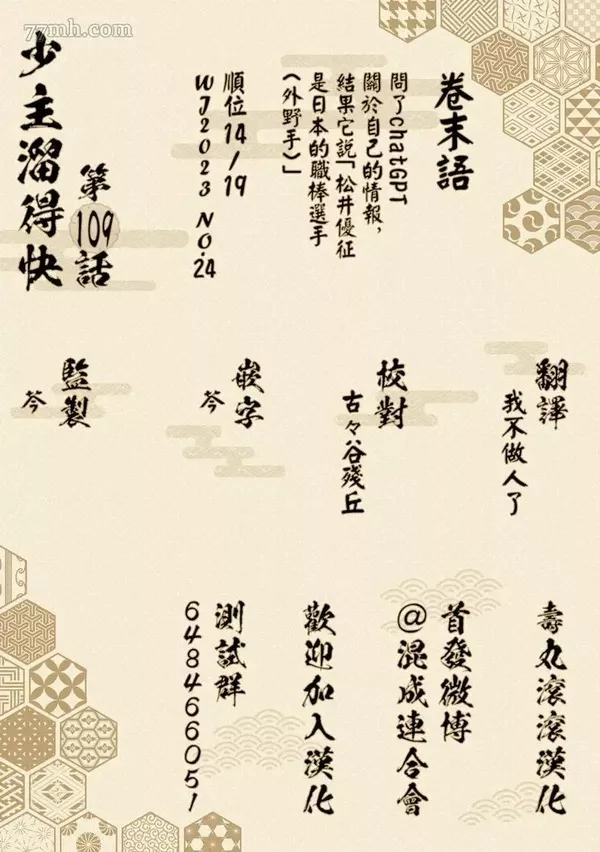 77mh.com
少主溜得快
第109話
卷末語
問了chatGPT
關於自己的情報,
結果它說「松井優征
是日本的職棒選手
(外野手)」
順位14/19
WJ2023 NO.24
翻譯
我不做人了
校對
古々谷殘丘
嵌字
芩
監製
芩
壽丸滾滾漢化
首發微博
@混成連合會
歡迎加入漢化
測試群
648466051